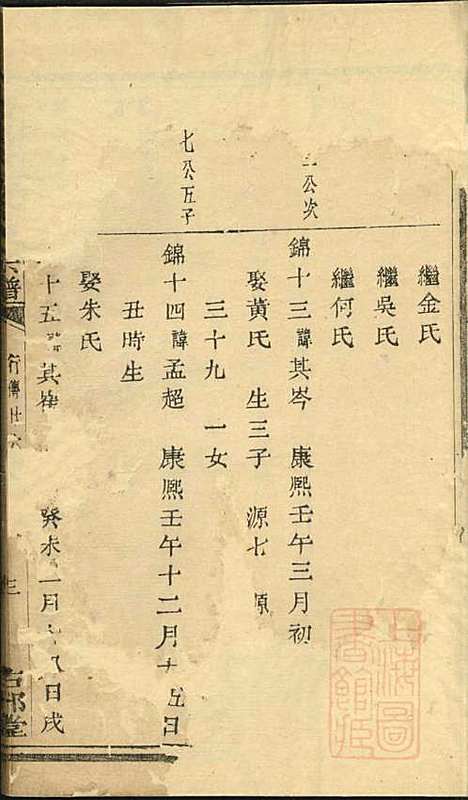 繼金氏
繼吳氏
繼何氏
公次
錦十三諱其岑 康熙壬午三月初
娶黃氏 生三子 源七 源
三十九 一女
七公五子
錦十四諱孟超 康熙壬午十二月十五日
丑時生
娶朱氏
十五 其 癸未 月 日戌
譜
行傳廿六
堂
上海圖書館藏